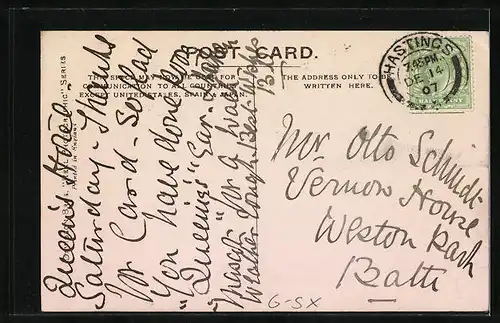 POST CARD.
THIS SPACE MAY NOW BE USED FOR
COMMUNICATION TO ALL COUNTRIES
EXCEPT UNITED STATES, SPAIN & JAPAN.
THE ADDRESS ONLY TO BE
WRITTEN HERE.
HASTINGS
7.45 PM
DE 14
07
HALFPENNY
SERIES
Printed in
Queen's Hotel
Saturday - Thanks
for Card - So glad
you have done
"Queenie's" Ear-
mascot for a
weather tough Best Wishes
Mr Otto Schmidt
Vernon House
Weston Park
Bath
G-SX